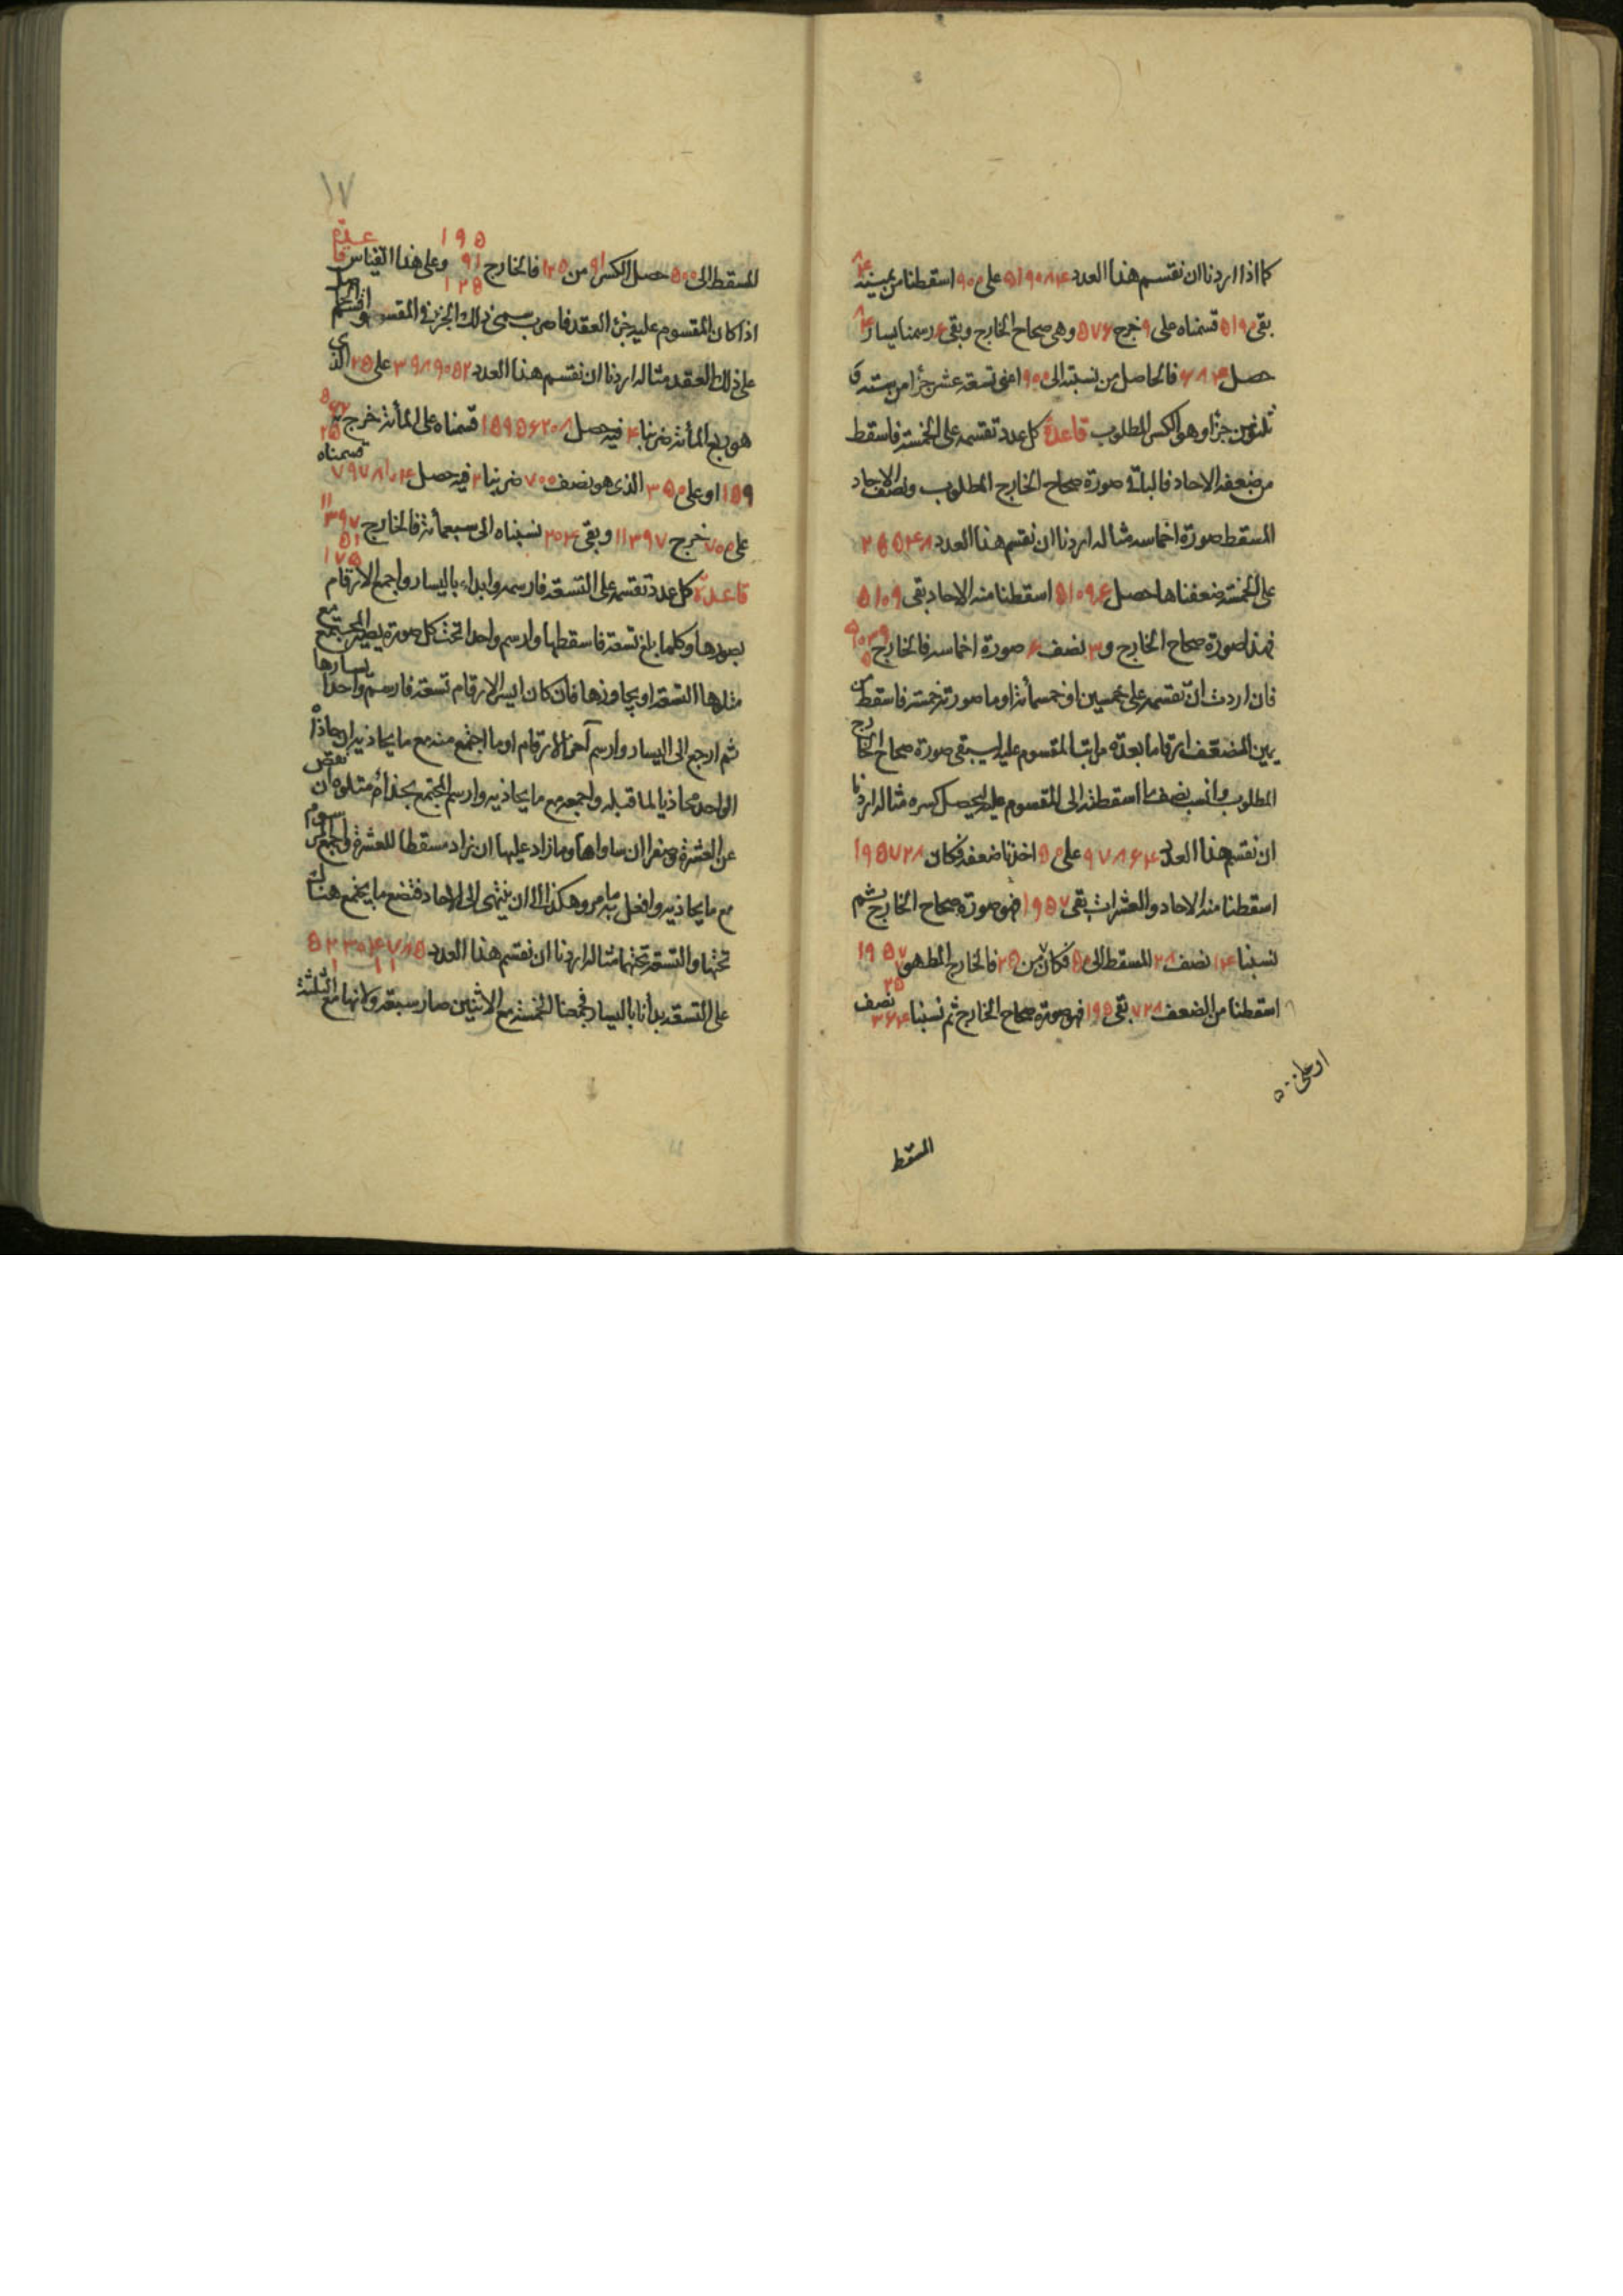 كما اذا اردنا ان نقسم هذا العدد ٥١٩٠٨٤ على ٩٠٠ اسقطنا من يمينه ٨٤
بقى ٥١٩٠ قسمناه على ٩ خرج ٥٧٦ وهى صحاح الخارج وبقى ٦ رسمنا يسار ٨٤
حصل ٦٨٤ فالحاصل من نسبته الى ٩٠٠ اعنى تسعة عشر جزأ من خمسة و
عشرين جزأ وهو الكسر المطلوب قاعدة كل عدد تقسمه على الخمسة فاسقط
من ضعفه الاحاد فالباقى صورة صحاح الخارج المطلوب ونصف الاحاد
المسقط صورة اخماسه مثاله اردنا ان نقسم هذا العدد ٢٥٥٤٨
على الخمسة ضعفناها حصل ٥١٠٩٦ اسقطنا منه الاحاد بقى ٥١٠٩
فهذا صورة صحاح الخارج و٣ نصف ٦ صورة اخماسه فالخارج
فان اردت ان تقسمه على خمسين او خمسمائة او ما صورته خمسة فاسقط من
يمين المضعف ارقاما بعدة مراتب المقسوم عليه يبقى صورة صحاح الخارج
المطلوب وانسب نصف ما اسقطته الى المقسوم عليه يحصل كسره مثاله اردنا
ان نقسم هذا العدد ٩٧٨٦٤ على ٥٠ اخذنا ضعفه فكان ١٩٥٧٢٨
اسقطنا منه الاحاد والعشرات بقى ١٩٥٧ فهو صورة صحاح الخارج ثم
نسبنا ١٤ نصف ٢٨ المسقط الى ٥٠ فكان ٧ من ٢٥ فالخارج المط هو ١٩٥٧ ٧ ٢٥
اسقطنا من الضعف ٧٢٨ بقى ١٩٥ فهو صورة صحاح الخارج ثم نسبنا ٣٦٤ نصف
او على ٥٠٠
المسقط
١٧
المسقط الى ٥٠٠ حصل الكسر ٩١ من ١٢٥ فالخارج ١٩٥ ٩١ ١٢٥ وعلى هذا القياس قاعدة
اذا كان المقسوم عليه جزء العقد فاضرب سمى ذلك الجزء فى المقسوم واقسم الحاصل
على ذلك العقد مثاله اردنا ان نقسم هذا العدد ٣٩٨٩٠٥٢ على ٢٥ الذى
هو ربع المائة ضربنا ٤ فيه حصل ١٥٩٥٦٢٠٨ قسمناه على المائة خرج
١٥٩ او على ٣٥٠ الذى هو نصف ٧٠٠ ضربنا ٢ فيه حصل ٧٩٧٨١٠٤ قسمناه
على ٧٠٠ خرج ١١٣٩٧ وبقى ٢٠٤ نسبناه الى سبعمائة فالخارج ١١٣٩٧ ٥١ ١٧٥
قاعدة كل عدد تقسمه على التسعة فارسمه وابداء باليسار واجمع الارقام
بصورها وكلما بلغ تسعة فاسقطها وارسم واحدا تحت كل صورة يصير المجتمع مع
مثلوها التسعة او يجاوزها فان كان ايسر الارقام تسعة فارسم واحدا يسارها
ثم ارجع الى اليسار وارسم آخر الارقام او ما اجتمع منه مع ما يحاذيه ان حاذاه
الواحد محاذيا لما قبله واجمعه مع ما يحاذيه وارسم المجتمع بحذاء متلوه ان نقص
عن العشرة وصفرا ان ساواها وما زاد عليها ان زاد مسقطا للعشرة واجمع المرسوم
مع ما يحاذيه وافعل به ما مر وهكذا الى ان ينتهى الى الاحاد فتضع ما يجتمع هنالك
تحتها والتسعة تحتهما مثاله اردنا ان نقسم هذا العدد ٥٢٣٠٤٧٨٥
على التسعة بدأنا باليسار فجمعنا الخمسة مع الاثنين صار سبعة ولانها مع الثلثة